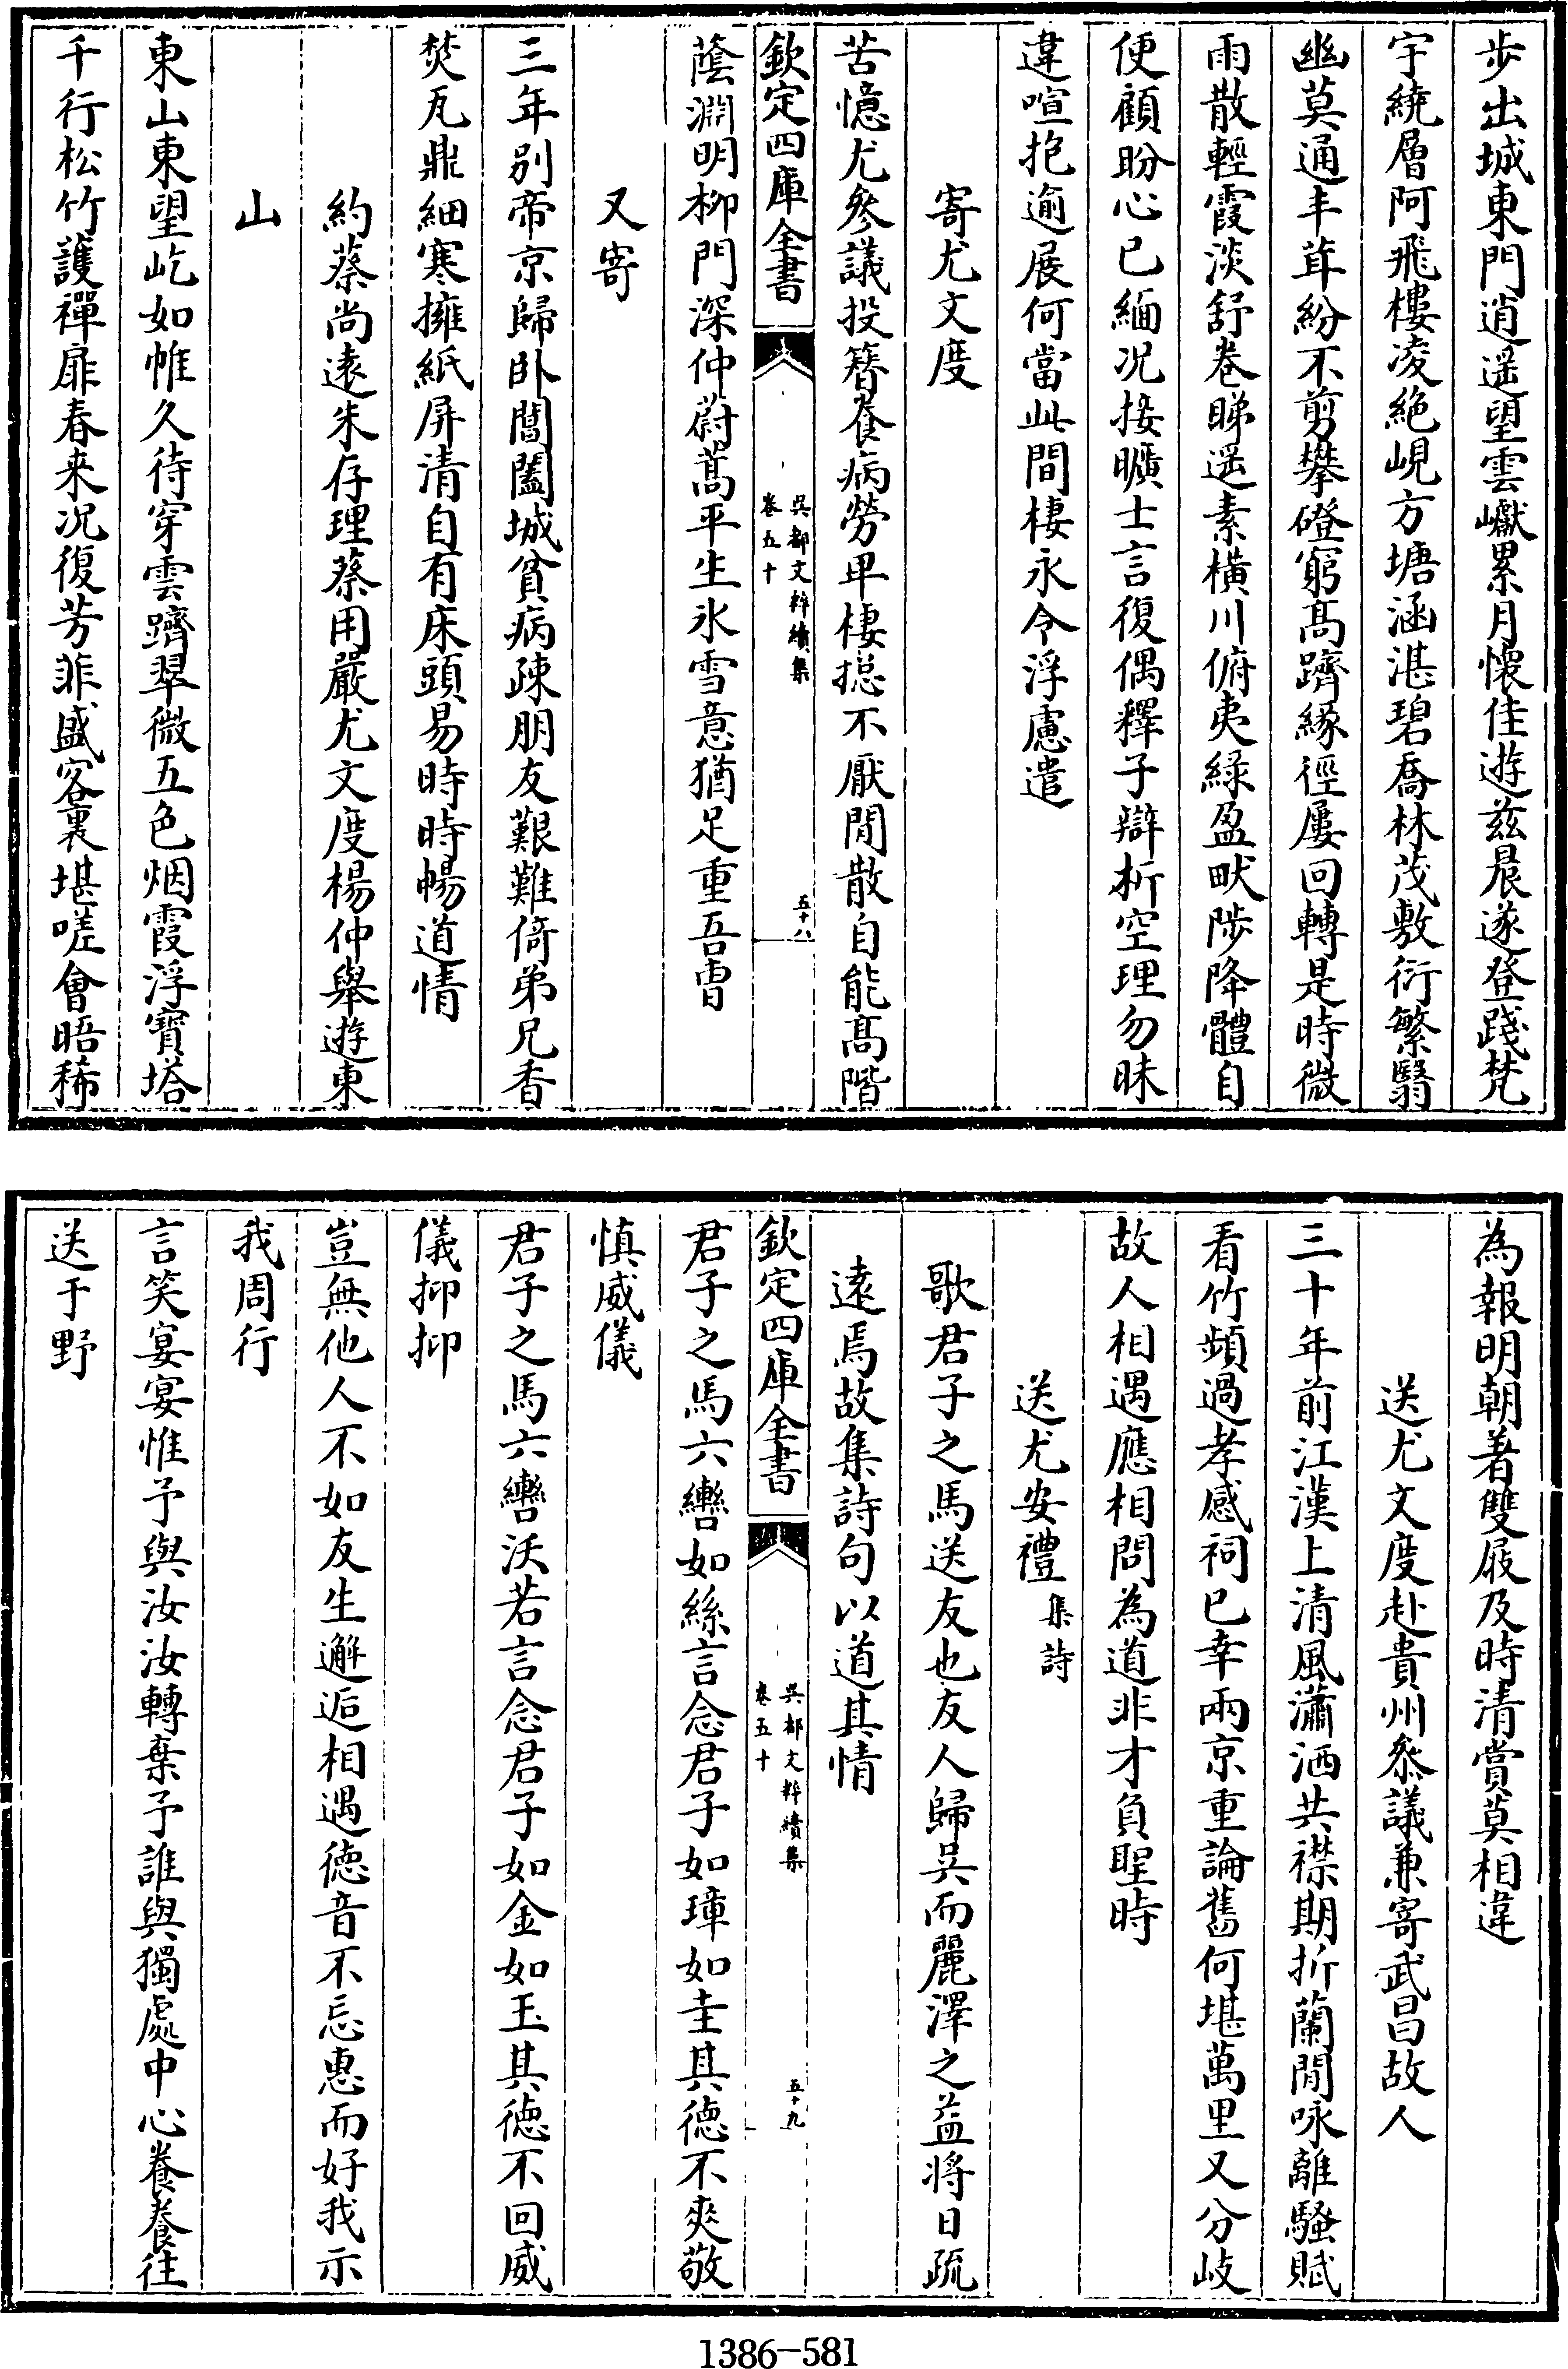 步出城東門逍遥望雲巘累月懷佳遊兹晨遂登踐梵
宇繞層阿飛樓凌絶峴方塘涵湛碧喬林茂敷衍繁翳
幽莫通丰茸紛不剪攀磴窮髙躋緣徑屢回轉是時微
雨散輕霞淡舒卷睇遥素橫川俯夷緑盈畎陟降體自
便顧盼心已緬况接曠士言復偶釋子辯析空理勿昧
違喧抱逾展何當此間棲永令浮慮遣
寄尤文度
苦憶尤參議投簪養病勞卑棲摠不厭閒散自能髙階
欽定四庫全書
吳都文粹續集
卷五十
五十八
蔭淵明柳門深仲蔚蒿平生氷雪意猶足重吾曹
又寄
三年别帝京歸卧闔閭城貧病疎朋友艱難倚弟兄香
焚瓦鼎細寒擁紙屏清自有床頭易時時暢道情
約蔡尚遠朱存理蔡用嚴尤文度楊仲舉遊東
山
東山東望屹如帷久待穿雲躋翠微五色烟霞浮寳塔
千行松竹護禪扉春来况復芳菲盛客裏堪嗟會晤稀
為報明朝着雙屐及時清賞莫相違
送尤文度赴貴州叅議兼寄武昌故人
三十年前江漢上清風瀟洒共襟期折蘭閒咏離騷賦
看竹頻過孝感祠已幸兩京重論舊何堪萬里又分岐
故人相遇應相問為道非才負聖時
送尤安禮集詩
歌君子之馬送友也友人歸吳而麗澤之益將日疏
遠焉故集詩句以道其情
欽定四庫全書
吳都文粹續集
卷五十
五十九
君子之馬六轡如絲言念君子如璋如圭其德不爽敬
慎威儀
君子之馬六轡沃若言念君子如金如玉其德不回威
儀抑抑
豈無他人不如友生邂逅相遇德音不忘惠而好我示
我周行
言笑宴宴惟予與汝汝轉棄予誰與獨處中心養養往
送于野
1386-581